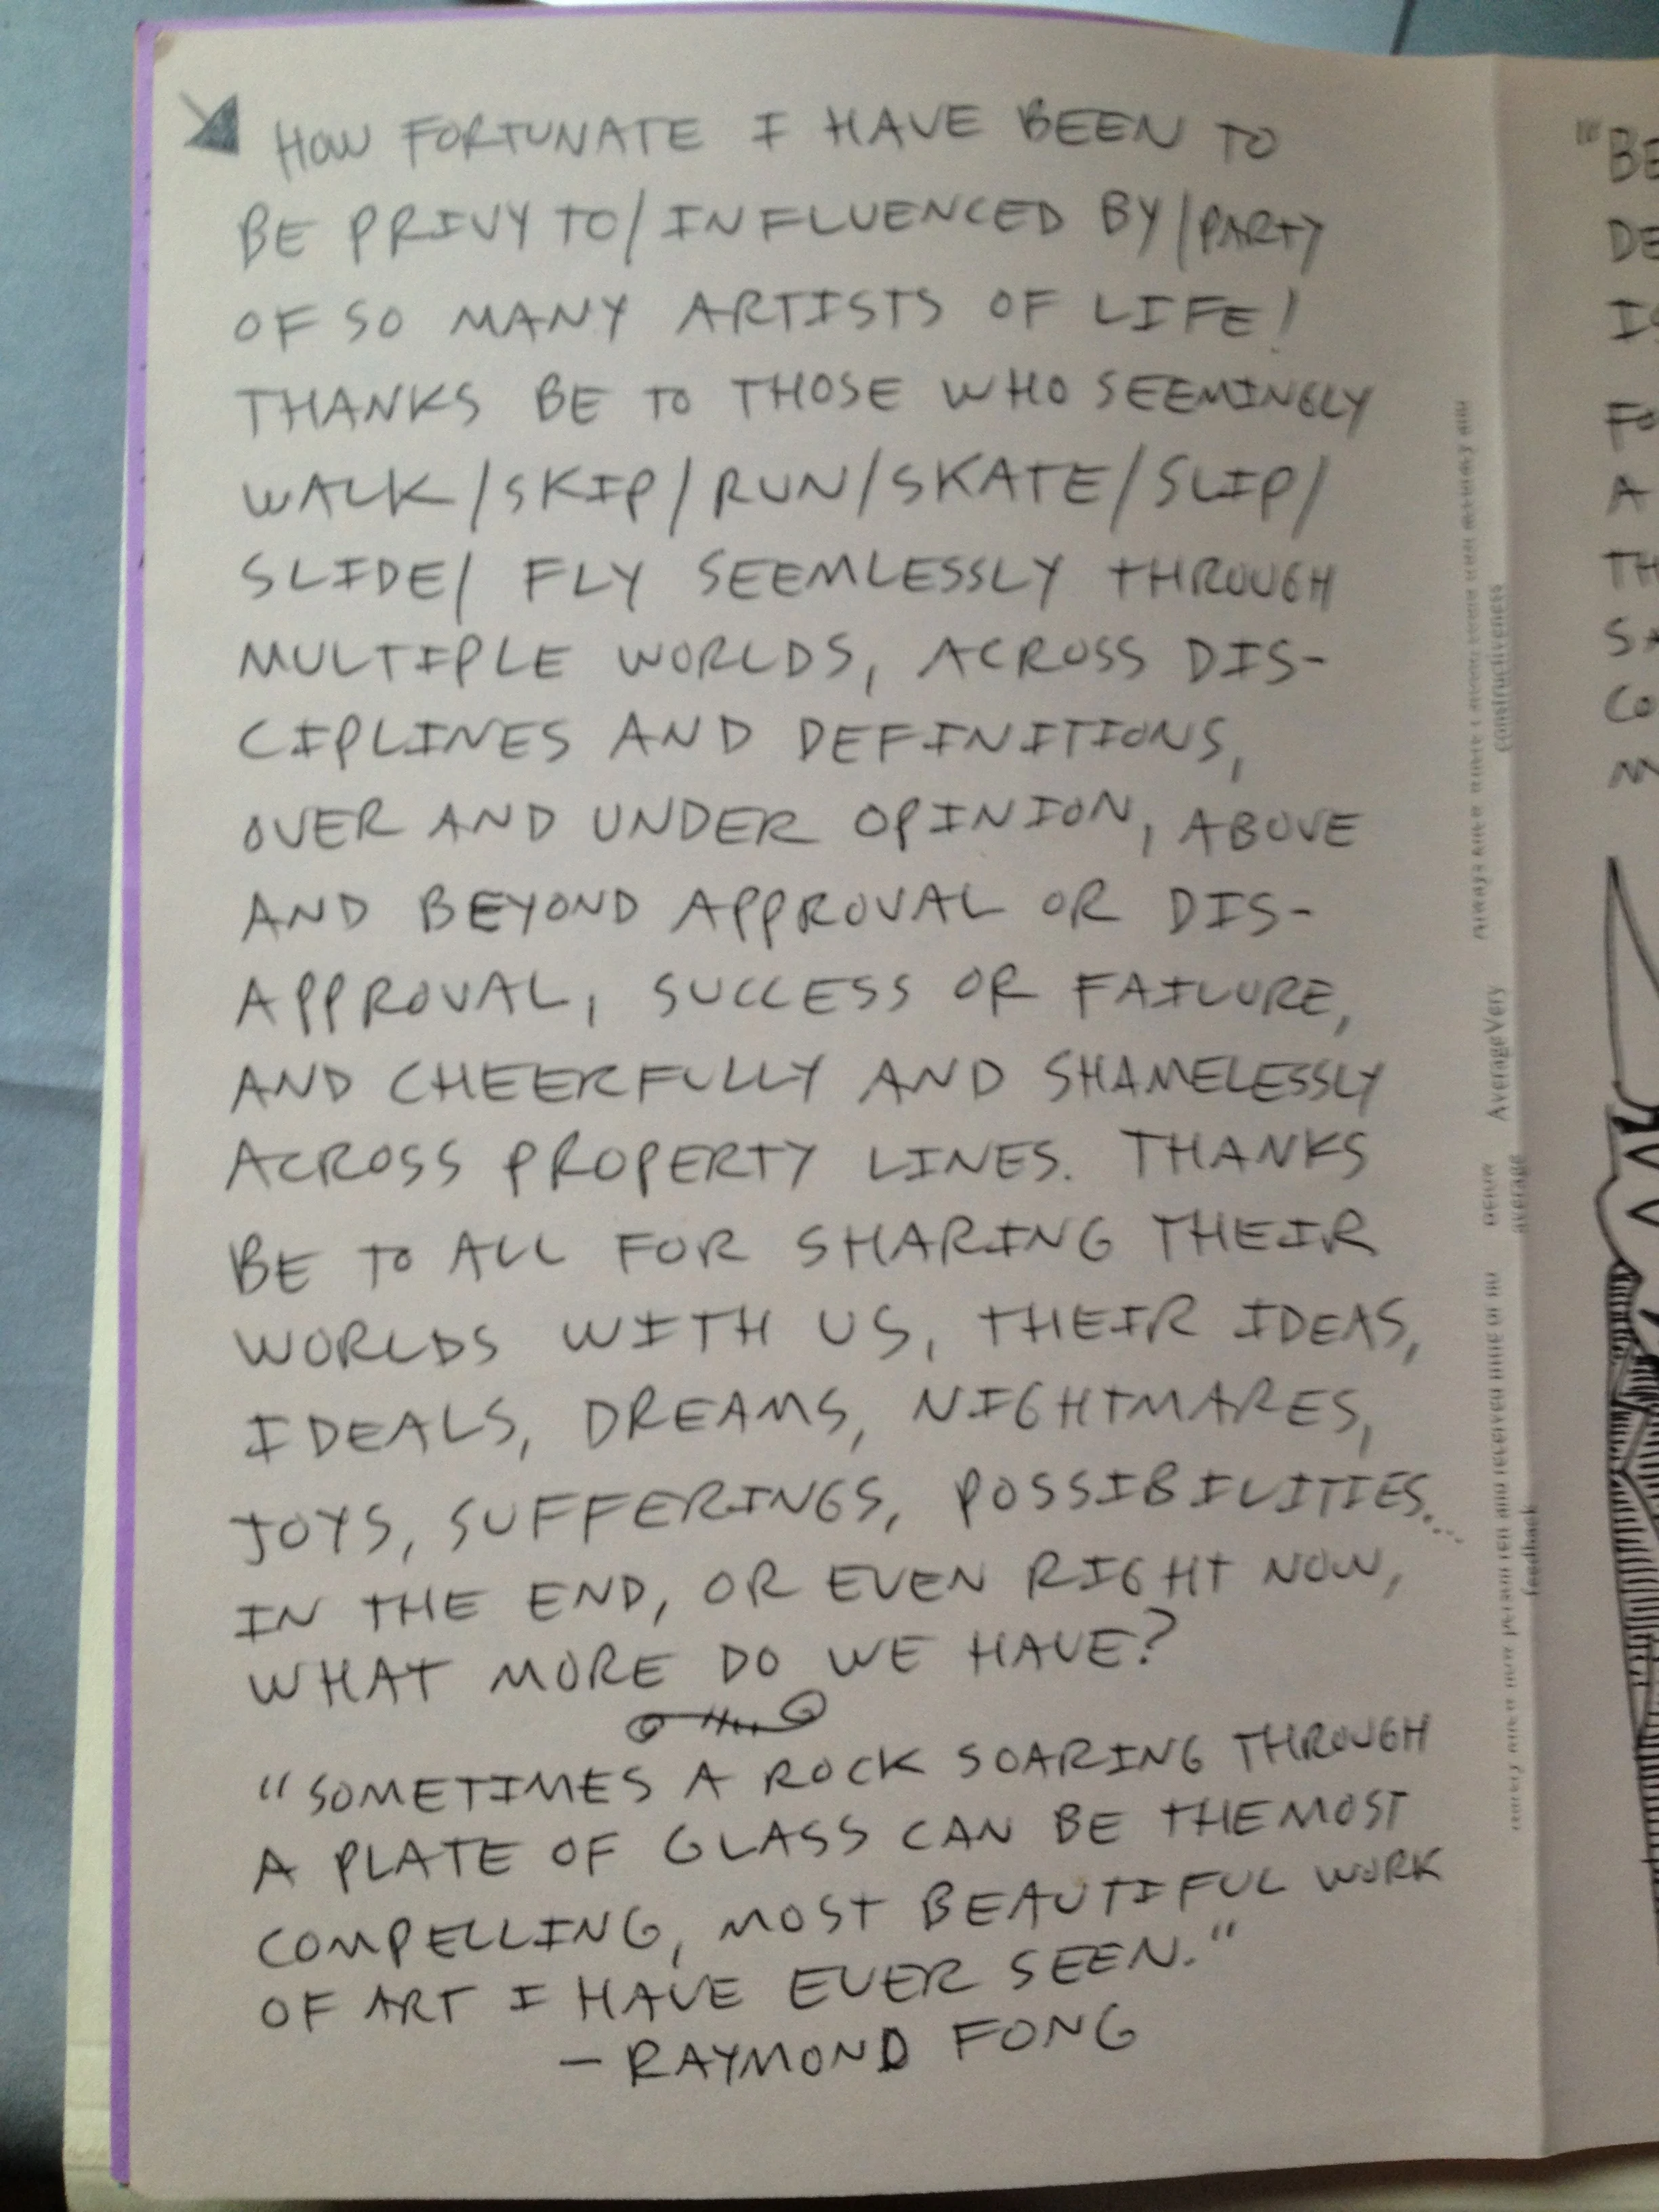 HOW FORTUNATE I HAVE BEEN TO
BE PRIVY TO/INFLUENCED BY/PARTY
OF SO MANY ARTISTS OF LIFE!
THANKS BE TO THOSE WHO SEEMINGLY
WALK/SKIP/RUN/SKATE/SLIP/
SLIDE/ FLY SEEMLESSLY THROUGH
MULTIPLE WORLDS, ACROSS DIS-
CIPLINES AND DEFINITIONS,
OVER AND UNDER OPINION, ABOVE
AND BEYOND APPROVAL OR DIS-
APPROVAL, SUCCESS OR FAILURE,
AND CHEERFULLY AND SHAMELESSLY
ACROSS PROPERTY LINES. THANKS
BE TO ALL FOR SHARING THEIR
WORLDS WITH US, THEIR IDEAS,
IDEALS, DREAMS, NIGHTMARES,
JOYS, SUFFERINGS, POSSIBILITIES...
IN THE END, OR EVEN RIGHT NOW,
WHAT MORE DO WE HAVE?
"SOMETIMES A ROCK SOARING THROUGH
A PLATE OF GLASS CAN BE THE MOST
COMPELLING, MOST BEAUTIFUL WORK
OF ART I HAVE EVER SEEN."
- RAYMOND FONG
constructiveness
AverageVery
average
feedback
"BE
DE
IS
FO
A
TH
SA
CO
M